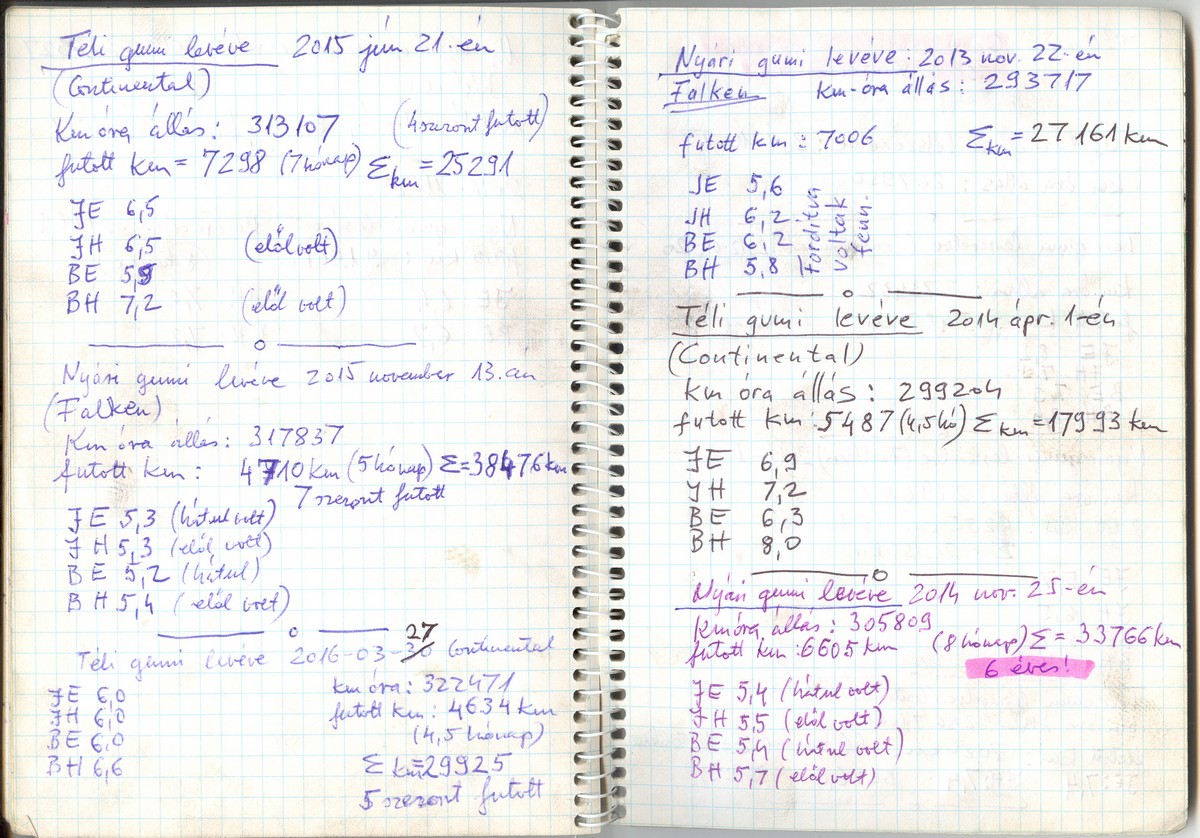 Téli gumi levéve 2015 jún 21-én
(Continental)
Km óra állás: 313107 (4 szezont futott)
futott km = 7298 (7 hónap) Σkm = 25291
JE 6,5
JH 6,5 (elöl volt)
BE 5,5
BH 7,2 (elöl volt)
Nyári gumi levéve 2015 november 13.-án
(Falken)
Km óra állás: 317837
futott km: 4710 km (5 hónap) Σ=38476 km
7 szezont futott
JE 5,3 (hátul volt)
JH 5,3 (elöl volt)
BE 5,2 (hátul)
BH 5,4 (elöl volt)
27
Téli gumi levéve 2016-03-30 Continental
km óra: 322471
JE 6,0
futott km: 4634 km
JH 6,0
(4,5 hónap)
BE 6,0
BH 6,6
Σkm=29925
5 szezont futott
Nyári gumi levéve: 2013 nov. 22-én
Falken km-óra állás: 293717
futott km: 7006 Σkm = 27161 km
JE 5,6
JH 6,2
BE 6,2
BH 5,8
fordítva
voltak
fenn.
Téli gumi levéve 2014 ápr. 1-én
(Continental)
km óra állás: 299204
futott km: 5487 (4,5 hó) Σkm=17993 km
JE 6,9
JH 7,2
BE 6,3
BH 8,0
Nyári gumi levéve 2014 nov. 25-én
Kmóra állás: 305809
futott km: 6605 km (8 hónap) Σ = 33766 km
6 éves!
JE 5,4 (hátul volt)
JH 5,5 (elöl volt)
BE 5,4 (hátul volt)
BH 5,7 (elöl volt)